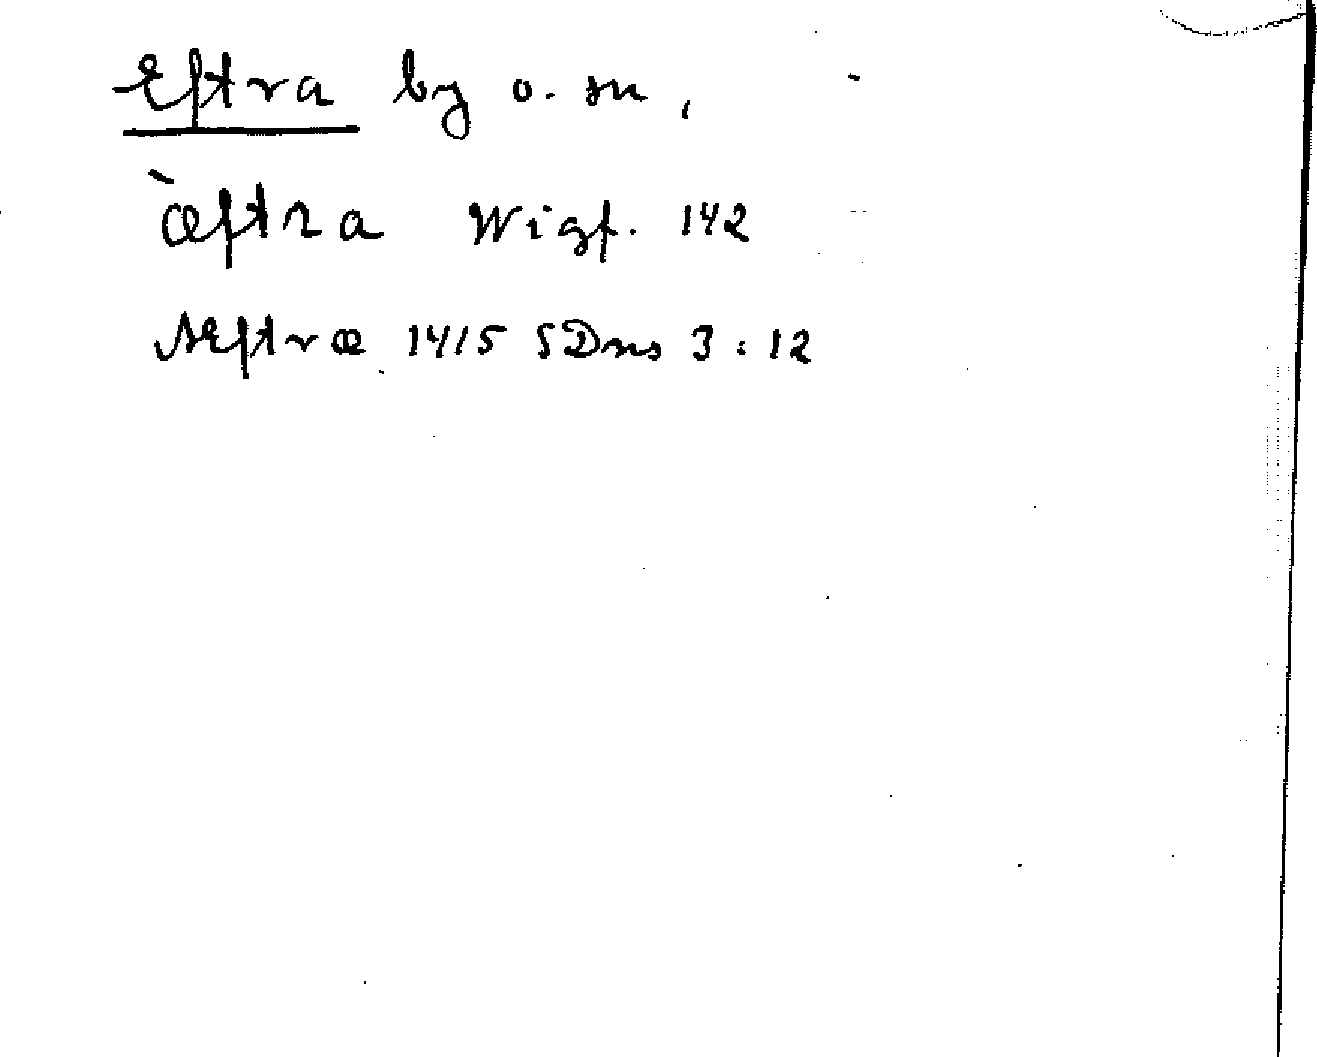 Eftra by o. sn,
æ̀ftra Wigf. 142
Aeftræ 1415 SDns 3:12